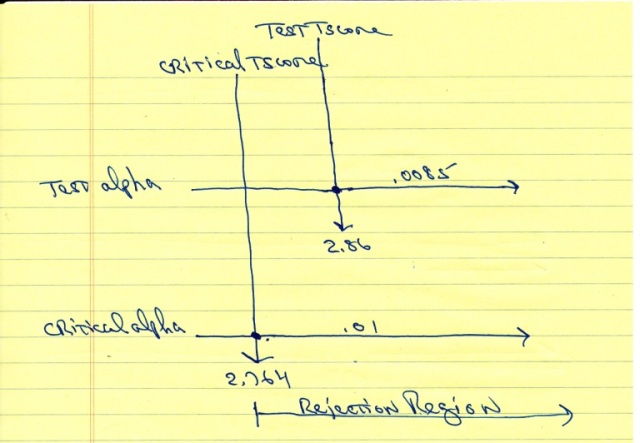 Test Tscore
CRiTical TScore
Test alpha
.0085
2.86
CRiTical alpha
.01
2.764
Rejection Region